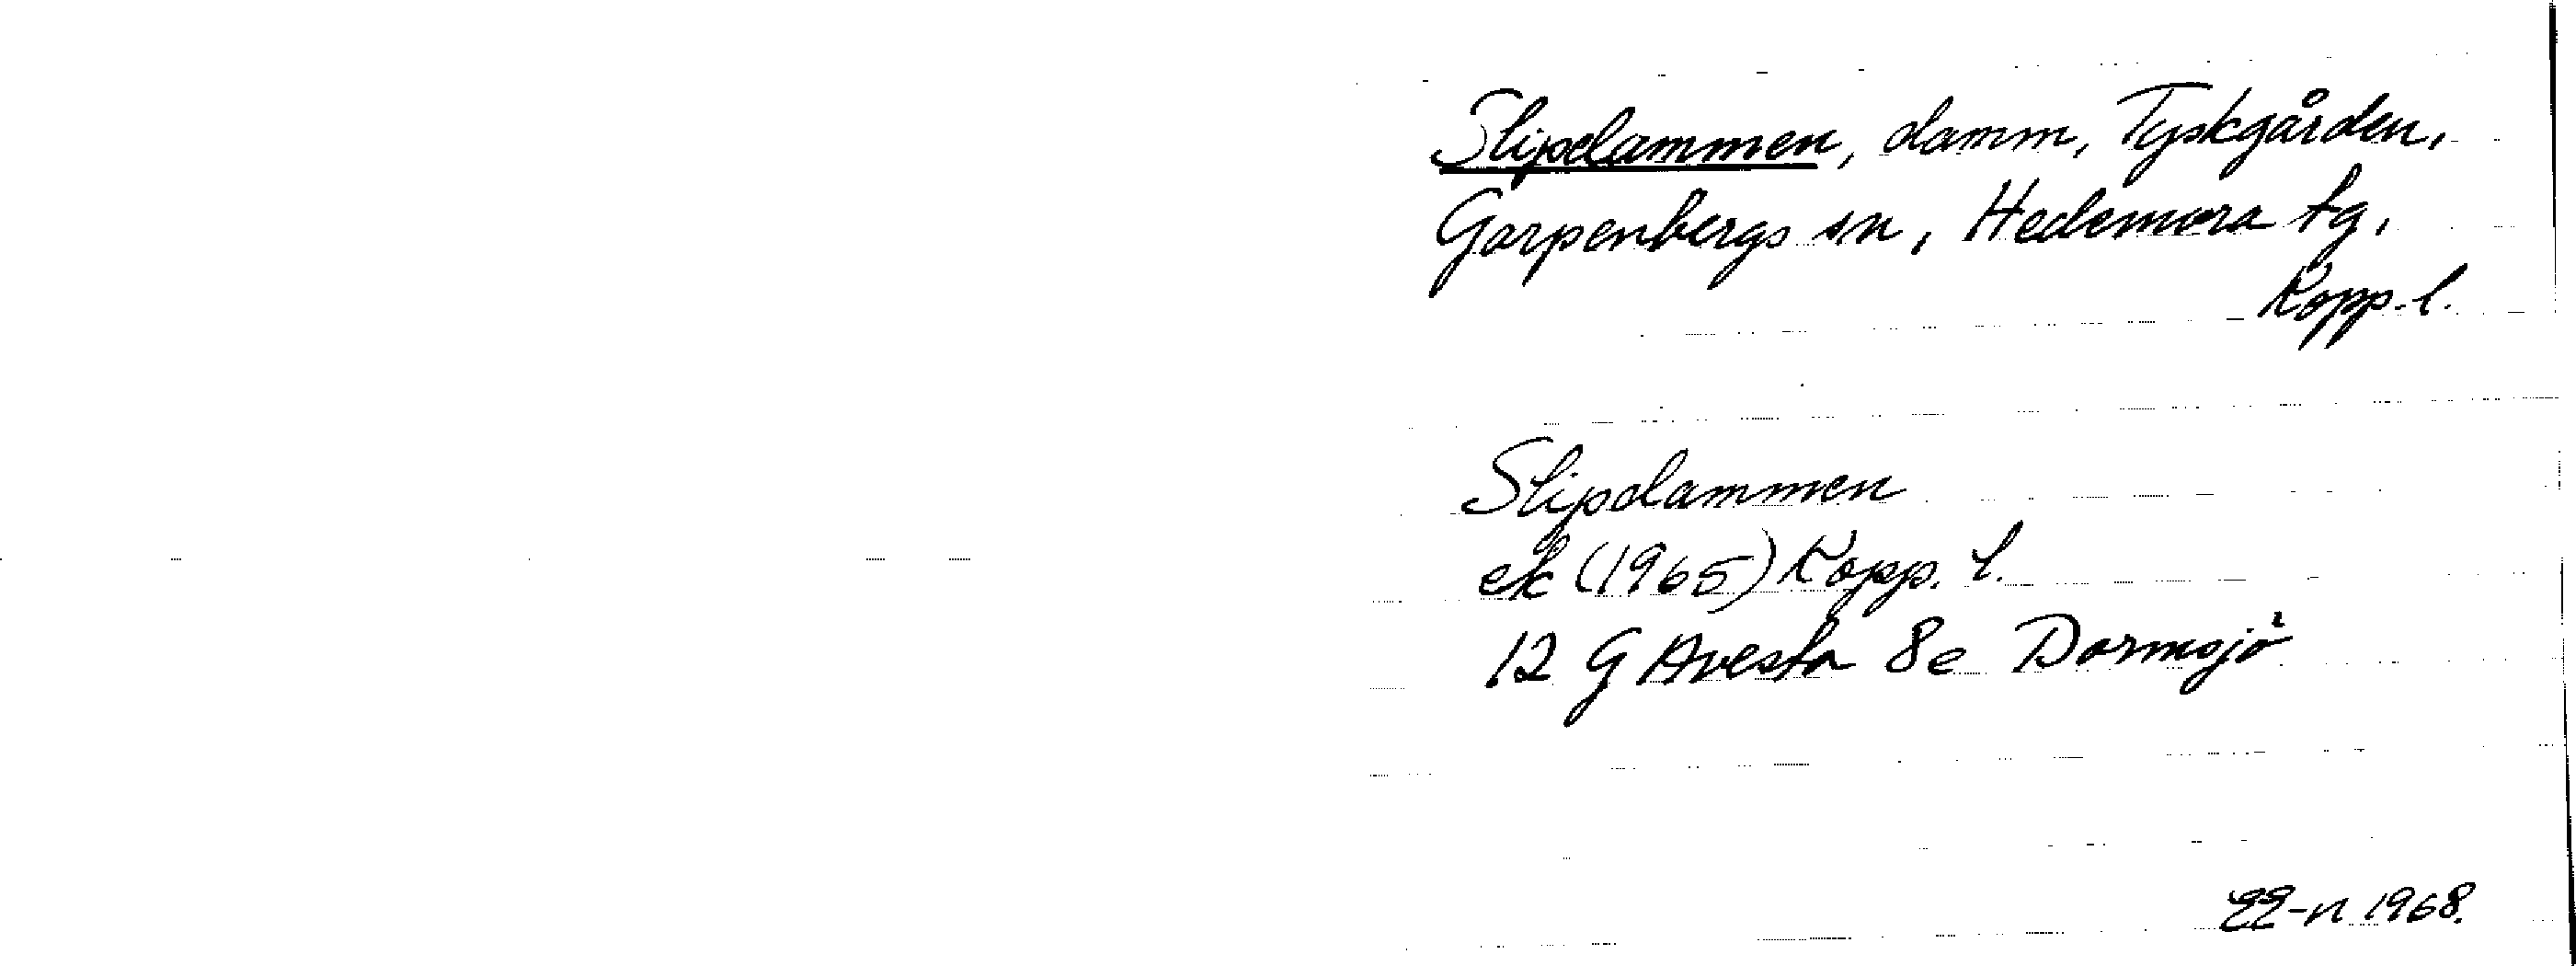 Slipdammen, damm, Tyskgården,
Garpenbergs sn, Hedemora tg,
Kopp. l.
Slipdammen
ek (1965) Kopp. l.
12 G Avesta 8e Dormsjö
EE-n 1968.